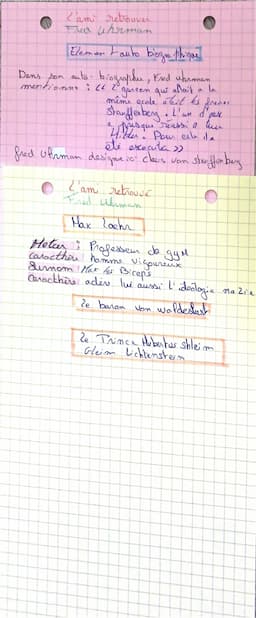 L'ami retrouvé
Fred Uhrman
Element autobiographique
Dans son auto-biographie, Fred uhrman
mentionne : << 2 garçon qui allait a la
même ecole était les frères
Stauffenberg. L'un d'eux
a presque réussi a tuer
Hitler. Pour cela il a
été executé >>
fred Uhrman designe ici claus von Stauffenberg
L'ami retrouvé
Fred Uhrman
Max Loehr
Métier : Professeur de gym
Caractère homme vigoureux
Surnom : Max les Biceps
Caractère adère lui aussi l'ideologie nazie
Le baron von waldeslust
Le Prince Hubertus Shleim
Gleim Lichtenstein